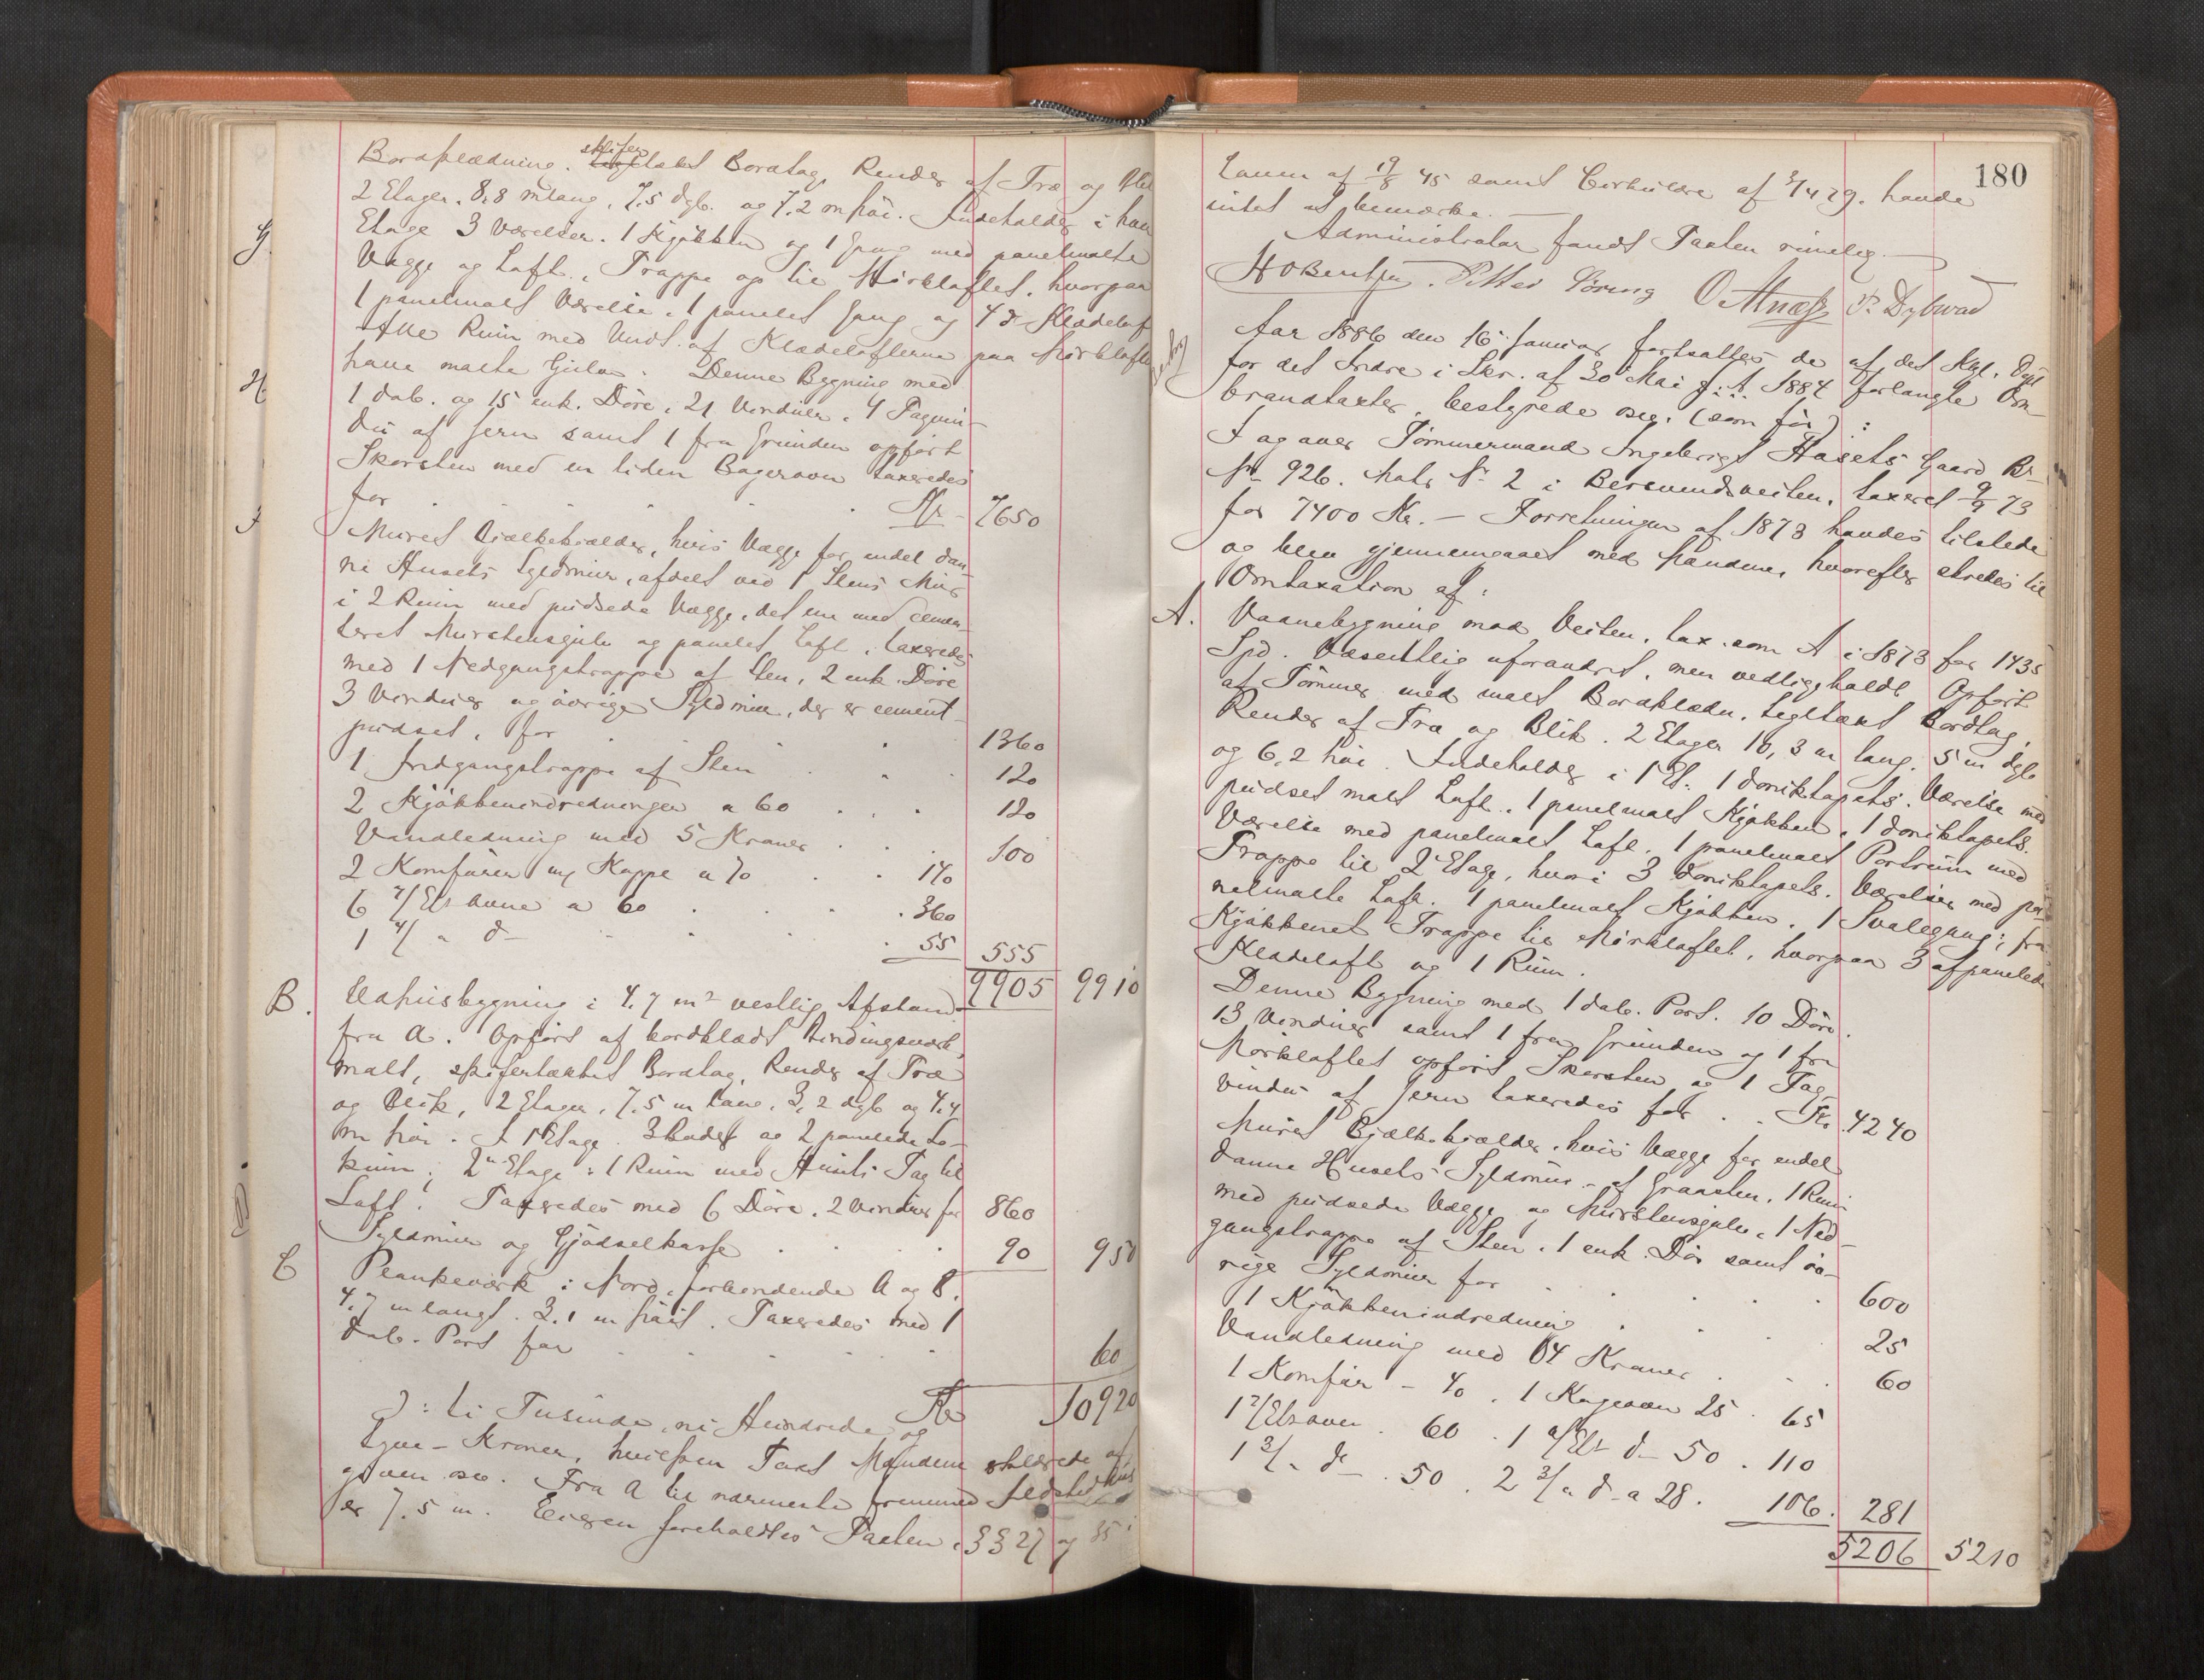 Bordklædning. skifertækt Bordtag, Render af Træ og Blik
2 Etager. 8,8 m lang, 7,5 dyb. og 7,2 m høi. Indeholder i hver
Etage 3 Værelser. 1 Kjøkken og 1 Gang med panelmalte
Vægge og Loft. Trappe op til Mørkloftet, hvorpaa
1 panelmalt Værelse. 1 panelet Gang og 4 do Klædeloft
Alle Rum med Undt. af Klædelofterne paa Mørkloftet
have malte Gulve. Denne Bygning med
1 dob. og 15 enk. Døre, 21 Vinduer. 4 Tagvin-
du af Jern samt 1 fra Grunden opført
Skorsten med en liden Bagerovn taxeredes
for . . . Kr. 7650
Muret Bjælkekjælder, hvis Vægge for endel dan-
ne Husets Syldmur, afdelt ved 1 Stens Mur
i 2 Rum med pudsede Vægge, det ene med cemen-
teret Murstensgulv og panelet Loft, taxeredes
med 1 Nedgangstrappe af Sten, 2 enk. Døre
3 Vinduer og øvrige Syldmur, der er cement-
pudset, for . . 1360
1 Indgangstrappe af Sten . . . 120
2 Kjøkkenindredninger a 60 . . . 120
Vandledning med 5 Kraner . . . 100
2 Komfurer m/ Kappe a 70 . . 140
6 2/Et Ovne a 60 . . . . 360
1 4/ " do . . . 55 555
9905 9910
B. Udhusbygning i 4,7 m² vestlig Afstand
fra A. Opført af bordklædt Bindingsværk,
malt, skifertækket Bordtag, Render af Træ
og Blik, 2 Etager, 7,5 m lang, 3,2 dyb og 4,4
m høi. I 1ste Etage 3 Boder og 2 panelede Lo-
kum; 2n Etage: 1 Rum med Husets Tag til
Loft. Taxeredes med 6 Døre, 2 Vinduer for 860
Syldmur og Gjødselkasse . . . . 90 950
C Plankeværk i Nord, forbindende A og B.
4,7 m langt. 3,1 m høit. Taxeredes med 1
dob. Port for . . . . . 60
Kr 10920
ɔ: ti Tusinde, ni Hundrede og
tyve Kroner, hvilken Taxt Mændene erklærede af-
given osv. Fra A til nærmeste fremmed Ildsted
er 7,5 m. Eieren foreholdtes Taxten, §§ 27 og 35 i
G.
H
I
180
Loven af 19/8 45 samt Cirkulære af 3/4 79. havde
intet at bemærke. —
Administrator fandt Taxten rimelig. —
H O Bentzen. Peter Søring O Alnæss P. Dybwad
Aar 1886 den 16 Januar fortsattes de af det Kgl. Dpt
for det Indre i Skr. af 30 Mai f. A. 1884 forlangte Om-
brandtaxter, bestyrede osv. (som før):
I og over Tømmermand Ingebrigt Haseths Gaard Br-
No 926. Matr No 2 i Bersvendsveiten, taxeret 9/9 73
for 7400 Kr. — Forretningen af 1873 havdes tilstede
og blev gjennemgaaet med Mændene, hvorefter skredes til
Omtaxation af:
A. Vaanebygning mod Veiten. tax. som A i 1873 for 1435
Spd. Væsentlig uforandret, men vedligeholdt. Opført
af Tømmer med malt Bordklædn. tegltækt Bordtag,
Render af Træ og Blik. 2 Etager 10,3 m lang. 5 m dyb
og 6,2 høi. Indeholder i 1 Et. 1 doriktapets. Værelse med
pudset malt Loft. 1 panelmalt Kjøkken. 1 doriktapets.
Værelse med panelmalt Loft. 1 panelmalt Portrum med
Trappe til 2 Etage, hvori 3 doriktapets. Værelser med pa-
nelmalte Loft. 1 panelmalt Kjøkken. 1 Svalegang; fra
Kjøkkenet Trappe til Mørkloftet, hvorpaa 3 afpanelede
Klædeloft og 1 Rum.
Denne Bygning med 1 dob. Port. 10 Døre.
13 Vinduer samt 1 fra Grunden og 1 fra
Mørkloftet opført Skorsten og 1 Tag-
vindu af Jern taxeredes for . . Kr. 4240
Muret Bjælkekjælder. hvis Vægge for endel
danne Husets Syldmur - af Graasten. 1 Rum
med pudsede Vægge og Murstensgulv. 1 Ned-
gangstrappe af Sten. 1 enk. Dør samt øv-
rige Syldmur for . . . . . 600
1 Kjøkkenindredning . . . 25
Vandledning med 4 Kraner . . . 60
1 Komfur - 40 . 1 Kageovn 25 . 65
1 2/Etsovn . 60 . 1 4/Ets do 50 . 110
1 3/ " do . 50 . 2 3/ " do a 28 . 106. 281
5206 5210